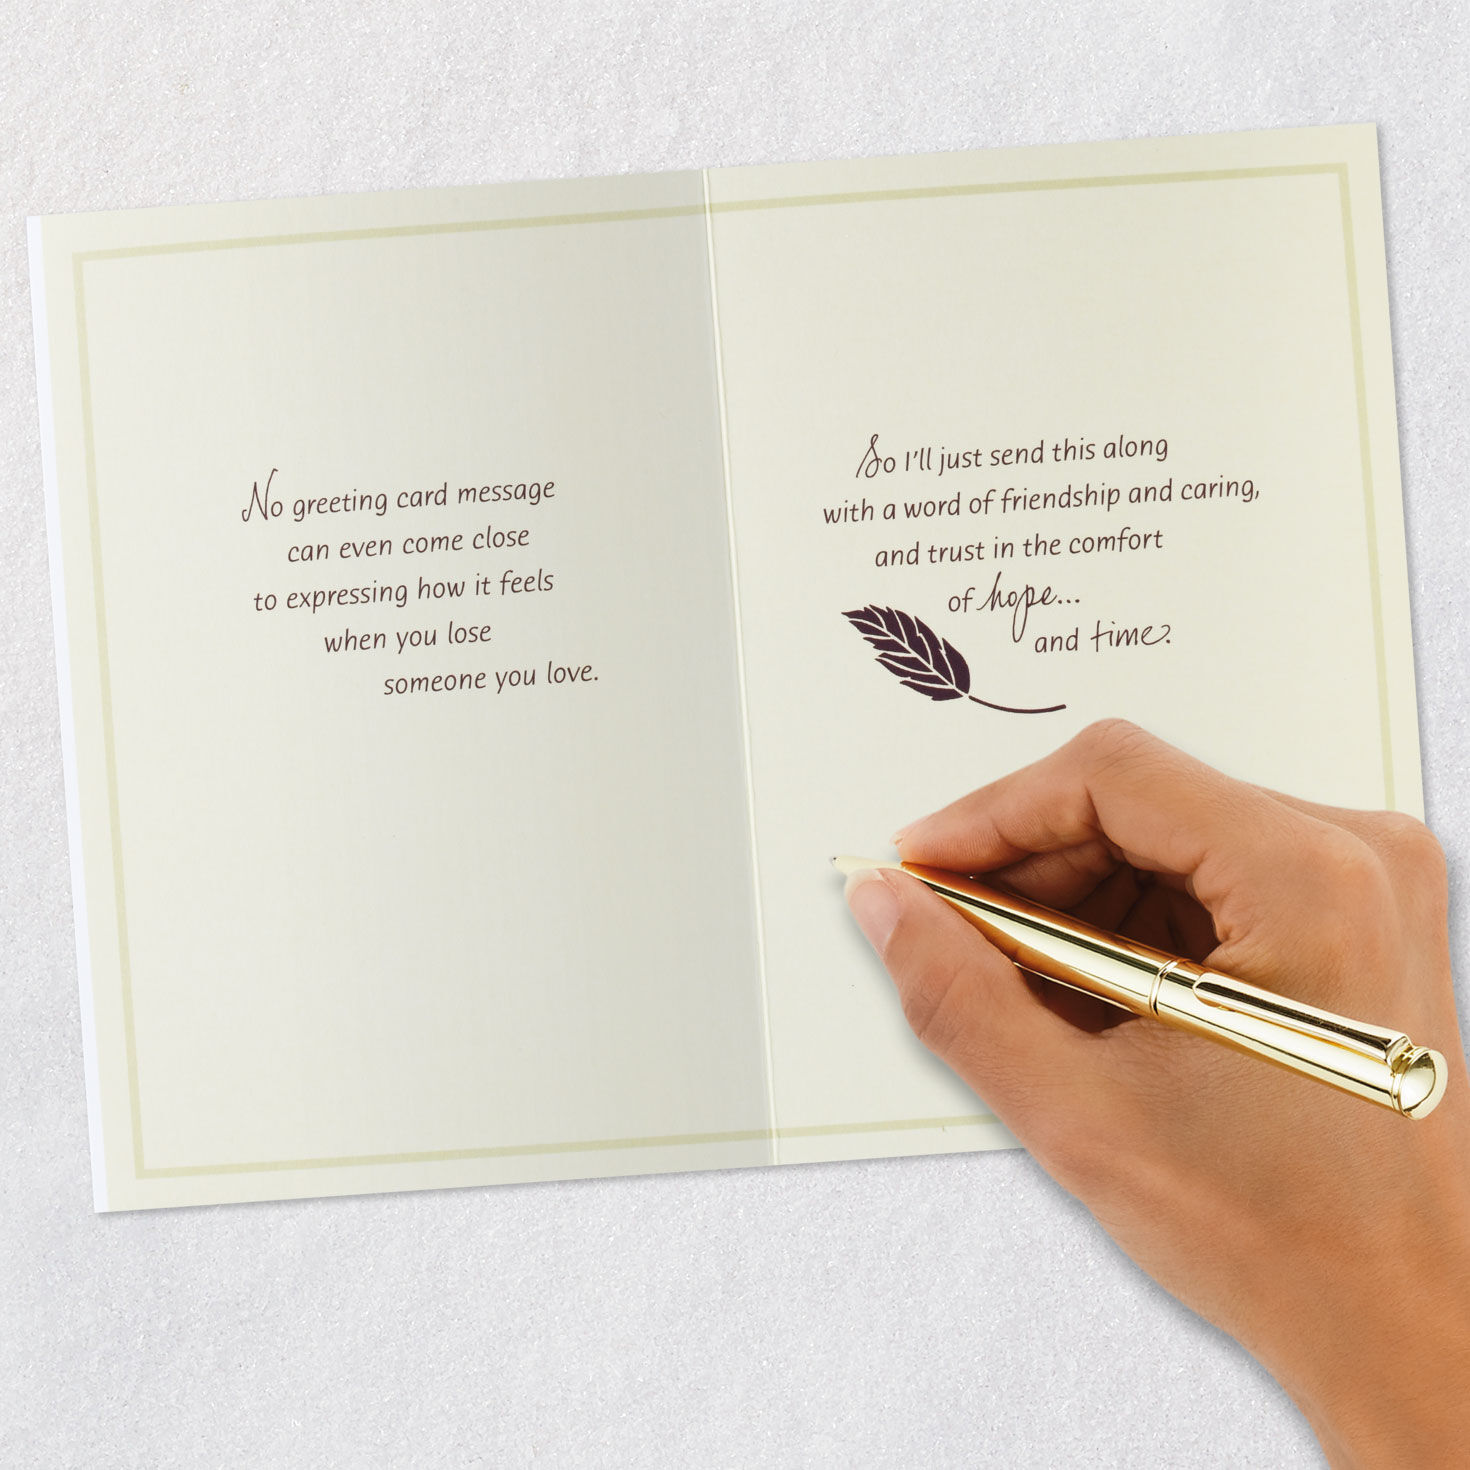 No greeting card message
can even come close
to expressing how it feels
when you lose
someone you love.
So I'll just send this along
with a word of friendship and caring,
and trust in the comfort
of hope...
and time.